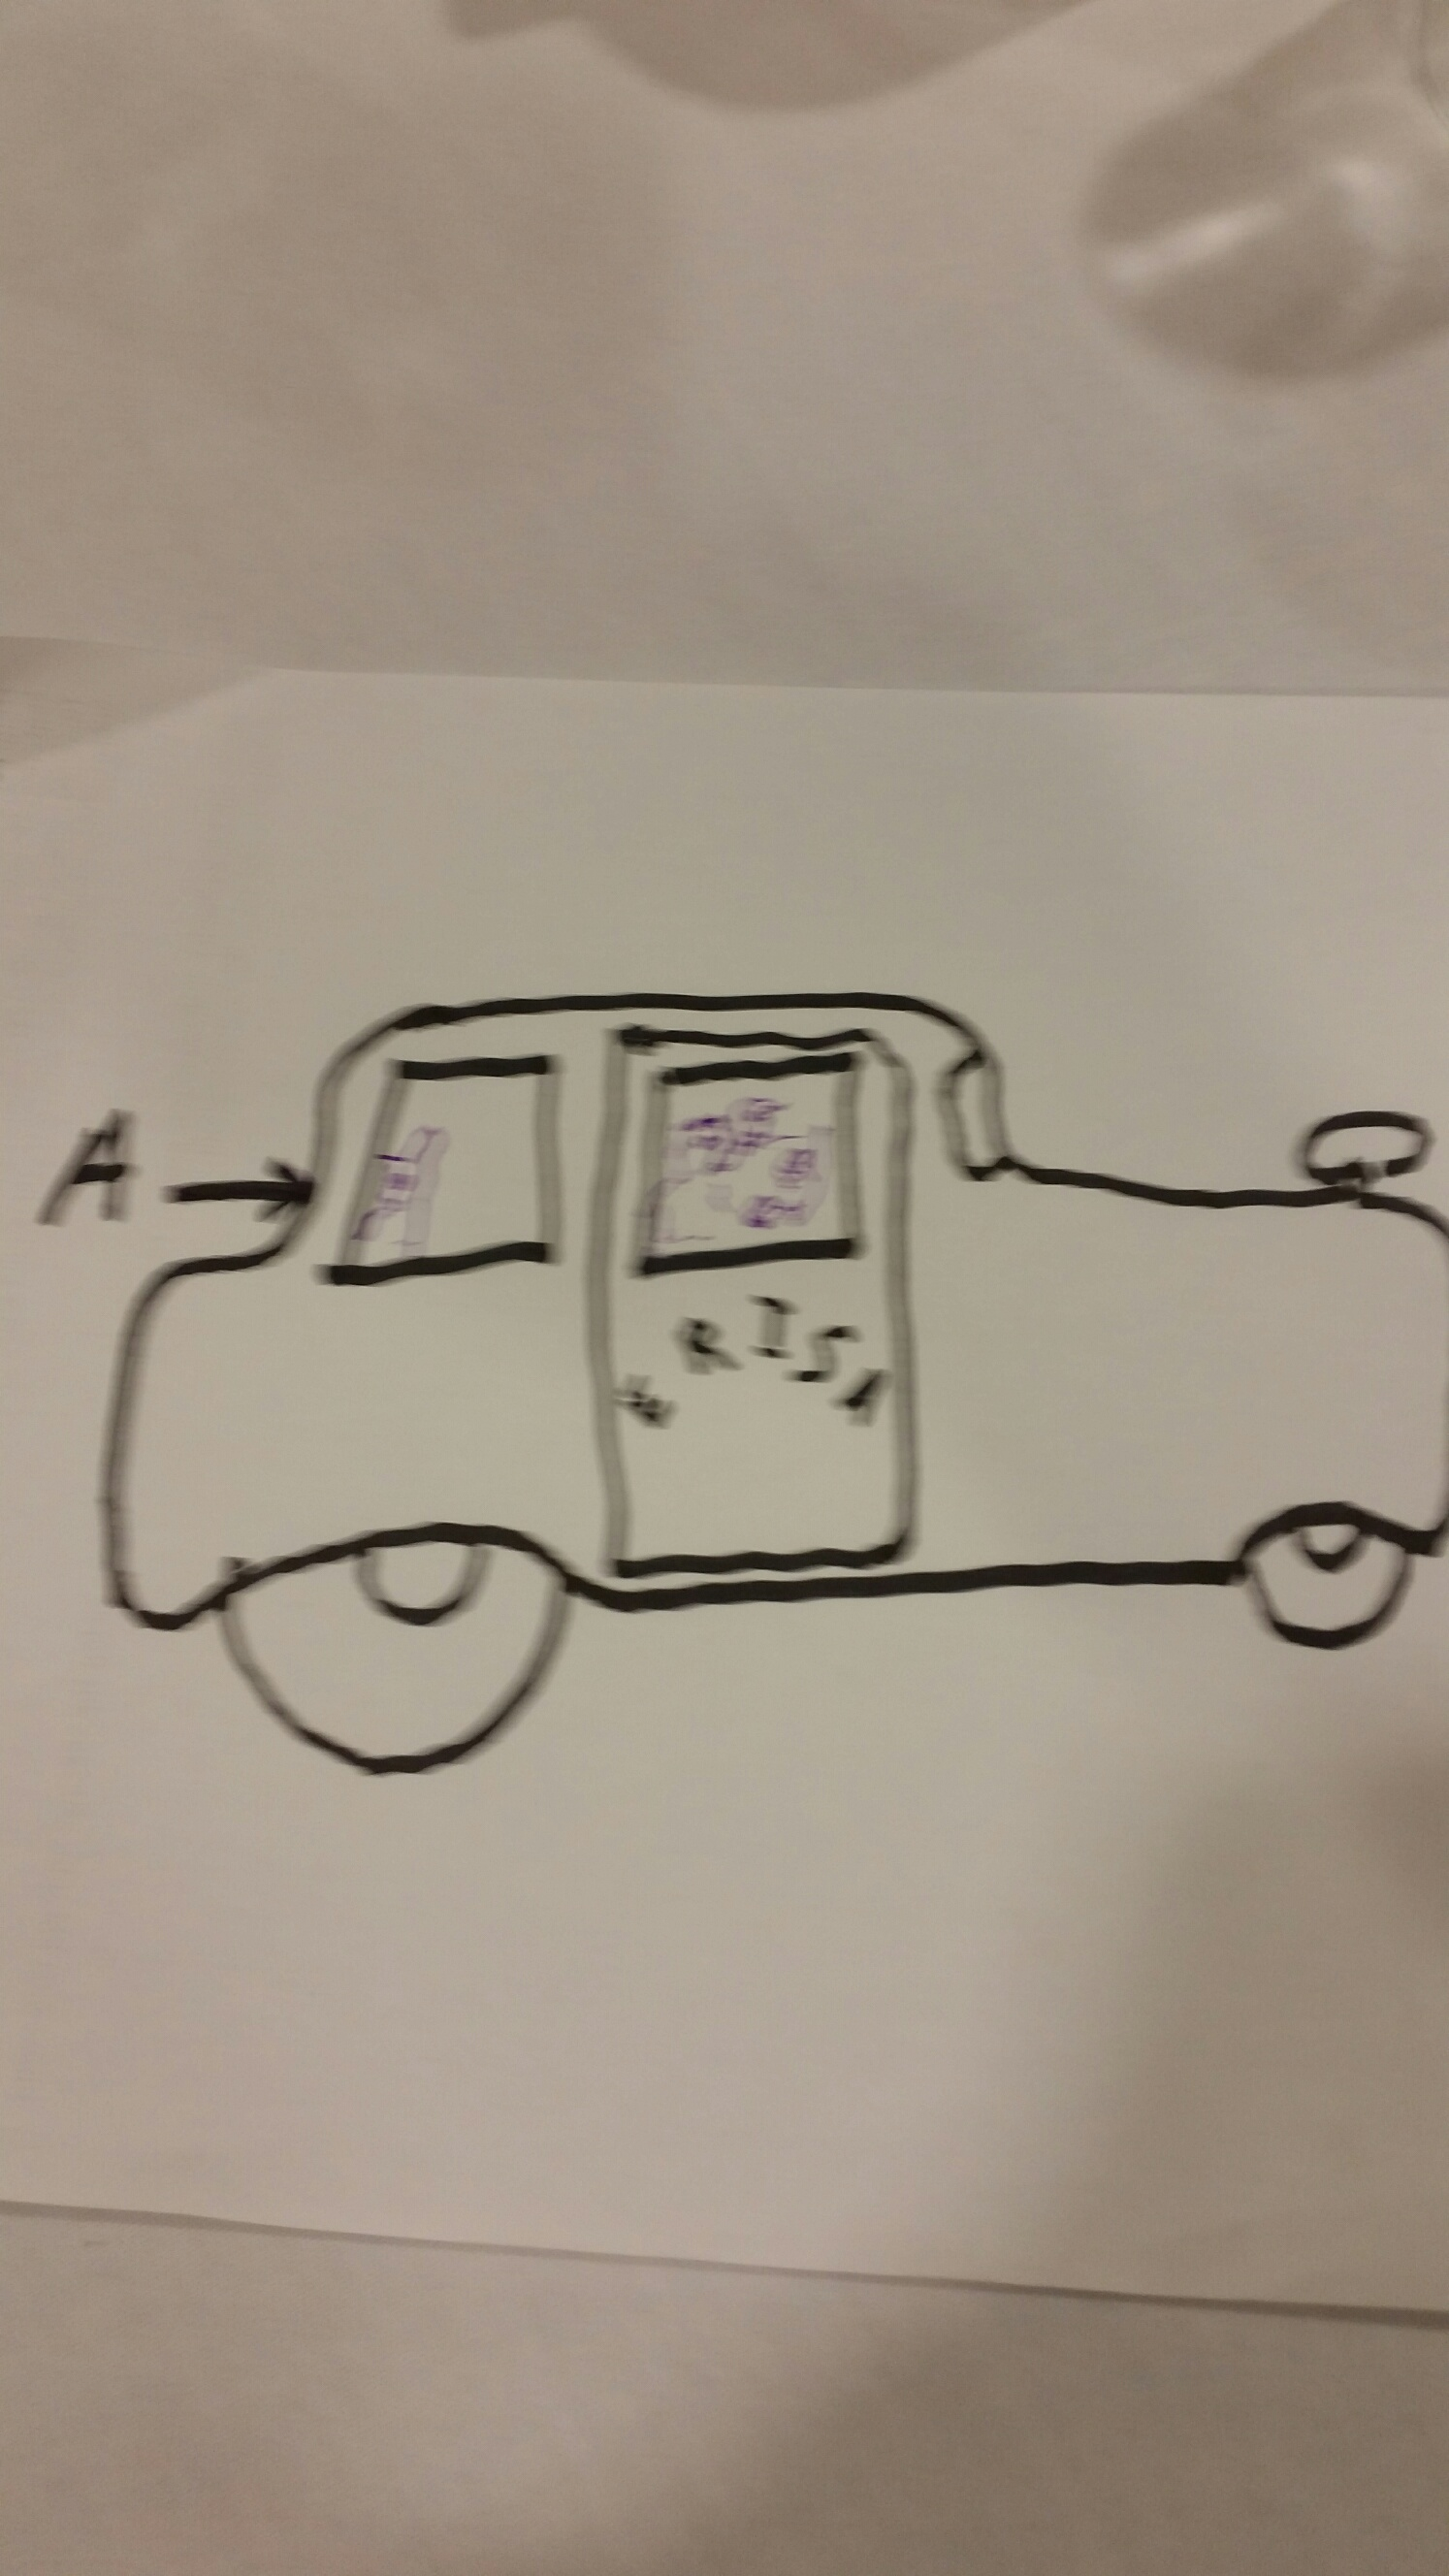 A
RISA